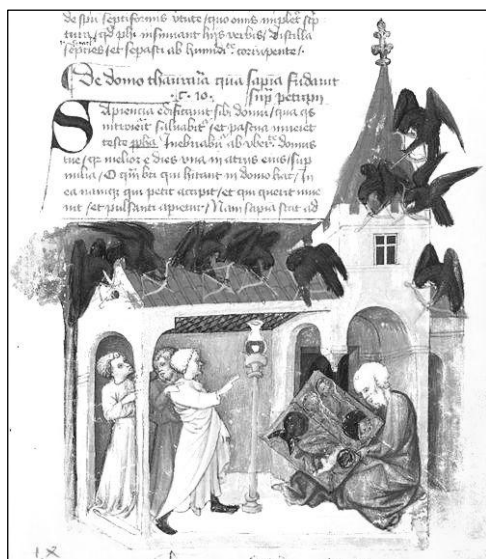 de spu septiformis vtute / quo omis implet scp
tura / qd phi insinuant hijs verbis / Distilla
sepcies / et sepasti ab humidit corrupente .
De domo thauraria qua sapia fudauit
.C. 10. sup petram
Sapiencia edificauit sibi domu / qua qs
introierit saluabit / et pascua inueiet
teste ppha Inebriabut ab vbert domus
tue / qz melior e dies vna in atrijs eius / sup
milia / O qm bti qui hitant in domo hac / In
ea namqz qui petit accipit / et qui querit inue
nit / et pulsanti apietur / Nam sapia stat ad
IX